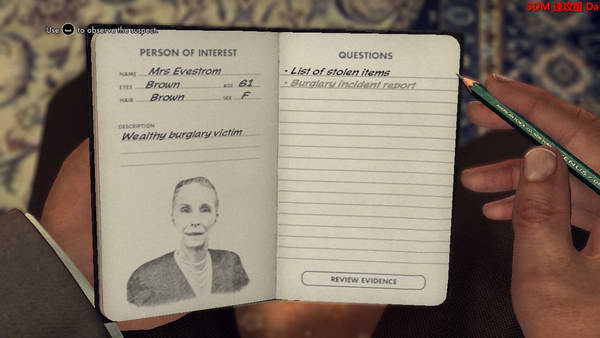 3DM 速攻组 Da
Use to observe the suspect.
PERSON OF INTEREST
NAME Mrs Evestrom
EYES Brown AGE 61
HAIR Brown SEX F
DESCRIPTION
Wealthy burglary victim
QUESTIONS
• List of stolen items
• Burglary incident report
REVIEW EVIDENCE